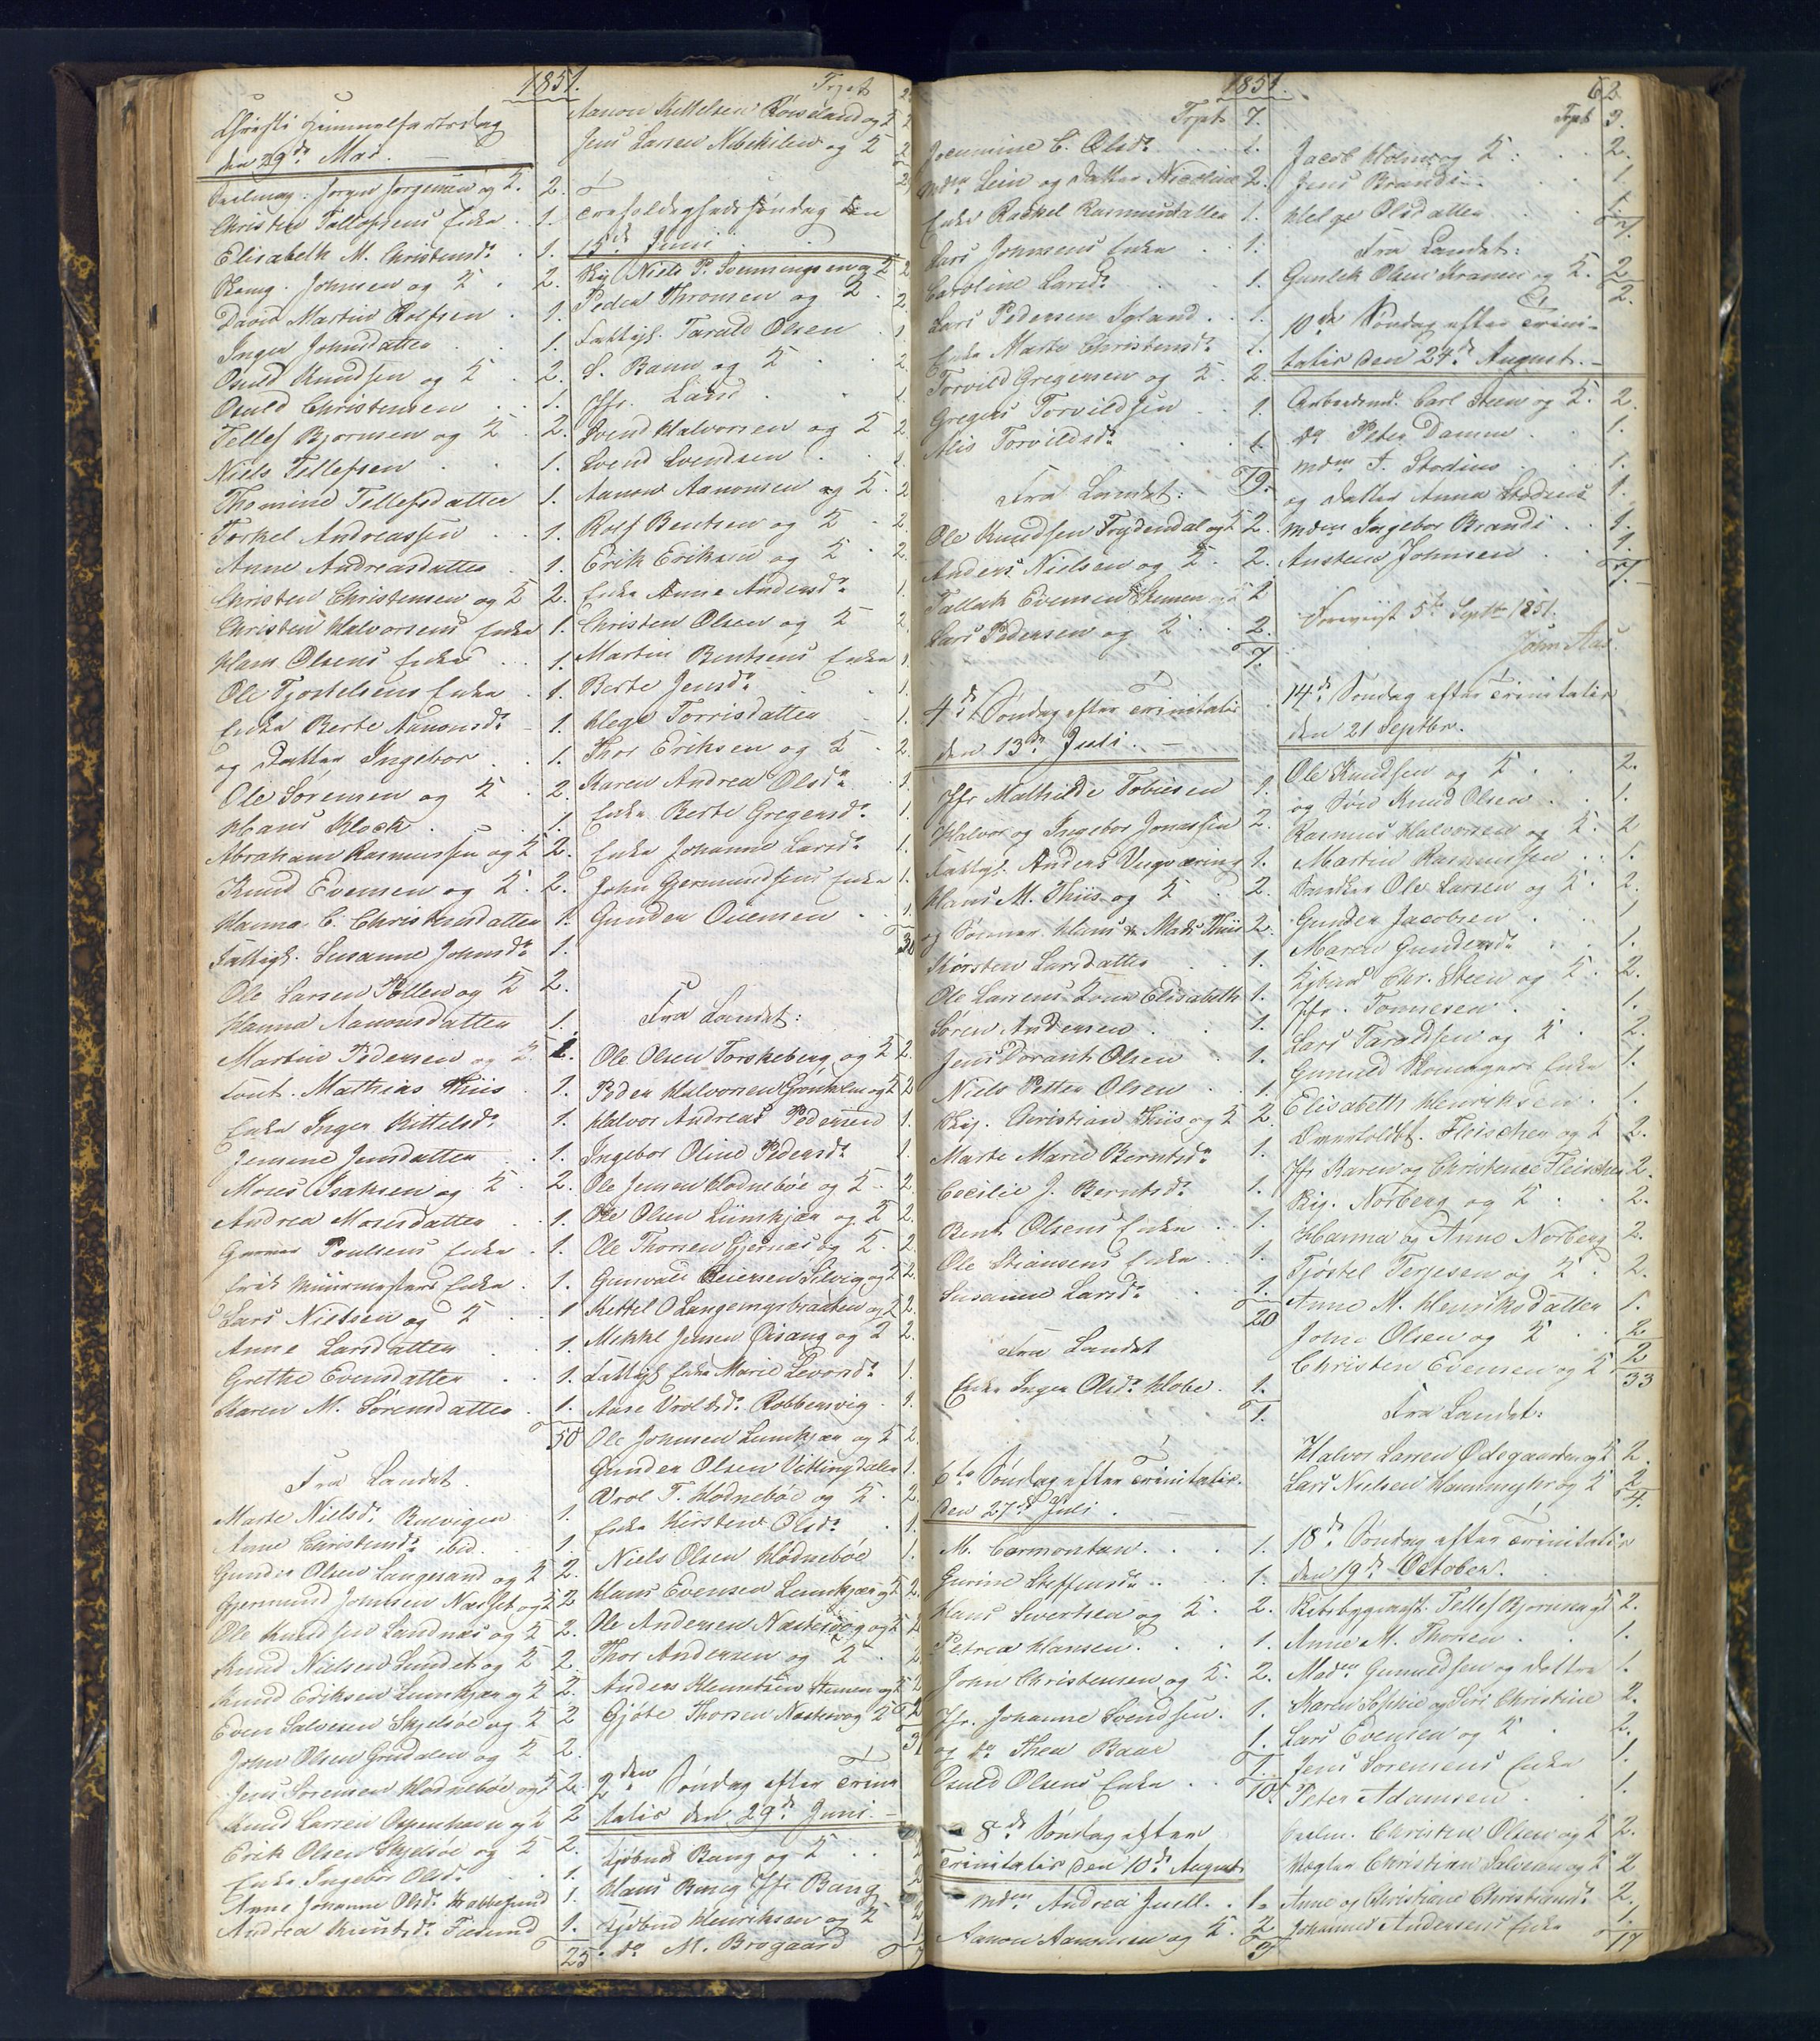 1851.
Christi Himmelfartsdag
den 29de Mai.
Seilmag. Jørgen Jørgensen og K. 2.
Christen Tallofsens Enke 1.
Elisabeth M. Christensdr 1.
Johnsen og K 2.
David Martin Rolfsen 1.
Inger Johnsdatter 1.
Osuld Knudsen og K 2.
Osuld Christensen 1.
Tellef Bjornsen og K 2.
Niels Tellefsen 1.
Thomine Tellefsdatter 1.
Torkel Andreassen 1.
Anne Andreasdatter 1.
Christen Christensen og K 2.
Christen Halvorsens Enke 1.
Hans Olsens Enke 1.
Ole Tjostelsens Enke 1.
Enke Berte Aanonsdr 1.
og Datter Ingebor 1.
Ole Sørensen og K 2.
Hans Klock 1.
Abraham Rasmussen og K 2.
Knud Evensen og K. 2.
Hanna C. Christensdatter 1.
Fattigl. Susanne Johnsdr 1.
Ole Larsen og K 2.
Hanna Aanonsdatter 1.
Martin Pedersen og K 2.
Mathias Thiis 1.
Enke Inger Kittelsdr 1.
Jensine Jensdatter 1.
Moses Isaksen og K 2.
Andrea Mosesdatter 1.
Poulsens Enke 1.
Erik Muurmesters Enke 1.
Lars Nielsen og K 1
Anne Larsdatter 1.
Grethe Evensdatter 1.
Karen M. Sørensdatter 1.
50
Fra Landet.
Marte Nielsdr 1.
Anne Christensdr ibid. 1.
Gunder Olsen Langesand og K 2.
Gjermund Johnsen Næsset og K 2
Ole Knudsen Sandnæs og K 2.
Knud Nielsen Sundet og K 2
Knud Eriksen Lunkjær og K 2.
Even Salvesen Skjelsøe og K 2
John Olsen og K 2.
Jens Sørensen Hodnebøe og K 2.
Knud Larsen og K 2
Erik Olsen Skjelsøe og K 2.
Enke Ingebor Olsdr 1.
Anne Johanne Olsdr 1.
Andrea 1.
25.
Trpt 2
Aanon Kettelsen Røiseland og K 2
Jens Larsen og K 2
Trefoldighedssøndag den
15de Juni
Niels P. Svenningsen og K 2
Peder Thronsen og K 2
Fattigl. Tarald Olsen 1
S. Baun og K 2
Jfr. Lind 1
Svend Halvorsen og K 2
Svend Svendsen 1.
Aanon Aanonsen og K. 2
Rolf Bentsen og K 2.
Erik Eriksen og K 2.
Enke Anne Andersdr 1
Christen Olsen og K 2
Martin Bentsens Enke 1
Berte Jensdr 1.
Hege Torrisdatter 1.
Thor Eriksen og K 2.
Karen Andrea Olsdr 1
Enke Berte Gregersdr 1.
Enke Johanne Larsdr 1.
John Gjermundsens Enke 1.
Gunder Ouensen 1.
Fra Landet:
Ole Olsen Torskeberg og K 2.
Peder Halvorsen og K 2
Halvor Andreas Pedersen 1.
Ingebor Oline Pedersdr 1.
Ole Jensen Hodnebøe og K. 2.
Ole Olsen Lunkjær og K 2.
Ole Thorsen Gjernæs og K 2.
Gunvald Reiersen og K 2.
Kettel O Langemyrbraaten og K 2.
Mikkel Jensen Øisang og K 2.
Fattigl Enke Marie 1.
Aase Vroldsdr Robbersvig 1.
Ole Johnsen Lunkjær og K 2.
Gunder Olsen Vittingdalen 1.
Vrol T. Hodnebøe og K 2.
Enke Kirsten Olsdr 1.
Niels Olsen Hodnebøe 1.
Hans Evensen Lunkjær og K 2.
Ole Andersen og K
Thor Andersen og K 2
Anders og K 2
Gjøte Thorsen og K 2
2den Søndag efter Trini
tatis den 29de Juni.
Kjøbmd Bang og K
Hans Bang Jfr Bang
Kjøbmd Henriksen og K
do M. Brogaard
1851.
62.
Trpt 7.
Jocumine C. Olsdr 1.
Mdm Lein og Datter Nicoline 2.
Enke Rackel Rasmusdatter 1.
Lars Johnsens Enke 1.
Caroline Larsdr 1.
Lars Pedersen Igland 1.
Enke Marte Christensdr 1.
Torvild Gregersen og K 2.
Gregers Torvildsen 1.
Alis Torvildsdr 1.
19.
Fra Landet:
Ole Knudsen Frydendal og K 2.
Anders Nielsen og K 2.
Tallak Evensen og K 2
Lars Pedersen og K 2.
7.
4de Søndag efter Trinitatis
den 13de Juli.
Jfr Mathilde Tobiesen 1.
Halvor og Ingebor Jonassen 2.
Fattigl. Anders 1.
Hans M. Thiis og K 2.
og Sønner Hans & Mads Thiis 2.
Kirsten Larsdatter 1.
Ole Larsens Kone Elisabeth 1.
Søren Andersen 1.
Jens Olsen 1.
Niels Petter Olsen 1.
Christian Thiis og K 2.
Marte Marie Berntsdr 1.
Cecilie J. Berntsdr 1.
Bent Olsens Enke 1.
Ole Stiansens Enke 1.
Susanne Larsdr 1.
20
Fra Landet
Enke Inger Olsdr Hobe 1.
1.
6te Søndag efter Trinitatis.
den 27de Juli
M. Carmontan 1.
Gurine Steffensdr 1.
Hans Sivertsen og K. 2.
Petrea Hansen 1.
John Christensen og K 2.
Jfr. Johanne Svendsen. 1.
og do Thea Baar 1.
Osuld Olsens Enke 1.
10.
8de Søndag efter
Trinitatis den 10de August
Mdm. Andrea Juell. 1.
Aanon Aanonsen og K 2
3
Trpt 3.
Jacob Holm og K 2.
Jens Brandi 1.
Helge Olsdatter 1.
7.
Fra Landet:
Gunlek Olsen Kranen og K. 2
2.
10de Søndag efter Trini-
tatis den 24de August.
Arbeidsmd. Carl Steen og K. 2.
do Peter Damm 1.
Mdm A. Stodius 1.
og Datter Anna Stodius 1.
Mdm Ingebor Brandi 1.
Austen Johnsen 1.
7.
Foreviist 5te Septbr 1851.
John Aas.
14de Søndag efter Trinitatis
den 21 Septbr.
Ole Knudsen og K 2.
og Søn Knud Olsen 1.
Rasmus Halvorsen og K. 2
Martin Rasmussen 1.
Snedker Ole Larsen og K 2.
Gunder Jacobsen 1
Maren Gundersdr 1.
Kjøbmd Chr. Steen og K. 2.
Jfr. Tonnesen 1.
Lars Taraldsen og K 2.
Gunuld Skomagers Enke 1.
Elisabeth Henriksen 1.
Fleischer og K 2.
Jfr Karen og Christense Fleischer 2.
Norberg og K 2.
Hanna og Anne Norberg 2.
Tjøstel Terjesen og K 2.
Anne M. Henriksdatter 1.
John Olsen og K 2
Christen Evensen og K 2
33
Fra Landet:
Halvor Larsen Ødegaarden og K 2.
Lars Nielsen Hammyhr og K 2
4.
18de Søndag efter Trinitatis
den 19de October.
Skibsbygmst. Tellef Bjornsen og K 2.
Anne M. Thorsen 1.
Madm Gunuldsen og Datter 1.
Karen Sophie og Siri Christine 2.
Lars Evensen og K 2.
Jens Sorensens Enke 1.
Peter Adamsen 1.
Seilm. Christen Olsen og K 2.
Hegler Christian Salvesen og K 2
Anne og Christiane Christiansdr 2.
Johannes Andersens Enke 1.
17